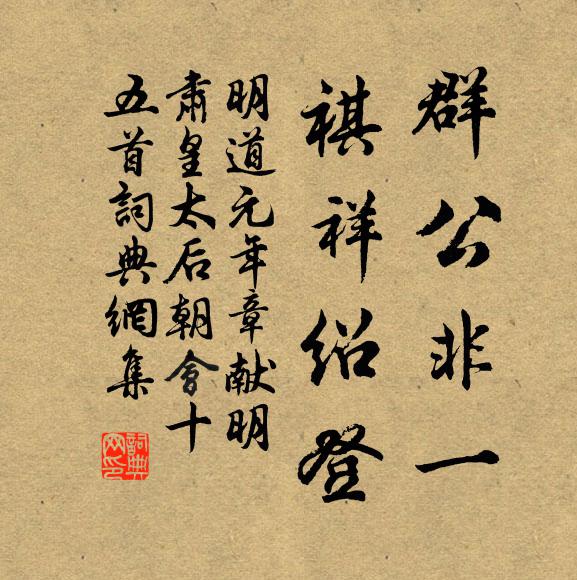 群公非一
祺祥绍登
明道元年章献明
肅皇太后朝會十
五首詞典網集
詞典网印